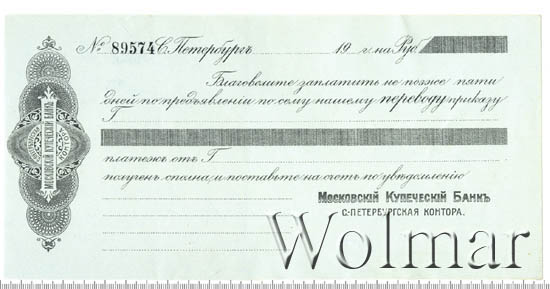 № 89574 С. Петербургъ 19 г. на Руб
Благоволите заплатить не позже пяти
дней по предъявленіи по сему нашему переводу приказу
Г
платежъ отъ Г
полученъ сполна, и поставьте на счетъ по увѣдомленію
Московскій Купеческій Банкъ
С.-Петербургская Контора.
Московскій Купеческій Банкъ
Wolmar